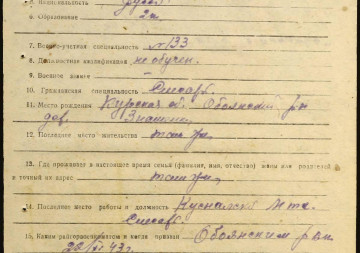 5. Национальность русск
6. Образование 2 кл
7. Военно-учетная специальность № 133
8. Должностная квалификация не обучен.
9. Военное звание
10. Гражданская специальность Слесарь.
11. Место рождения Курская об. Обоянский р-н
дер.
12. Последнее место жительства там же
13. Где проживает в настоящее время семья (фамилия, имя, отчество) жены или родителей
и точный их адрес там же,
14. Последнее место работы и должность
Слесарь
15. Каким райгорвоенкоматом и когда призван Обоянским р
43 г.